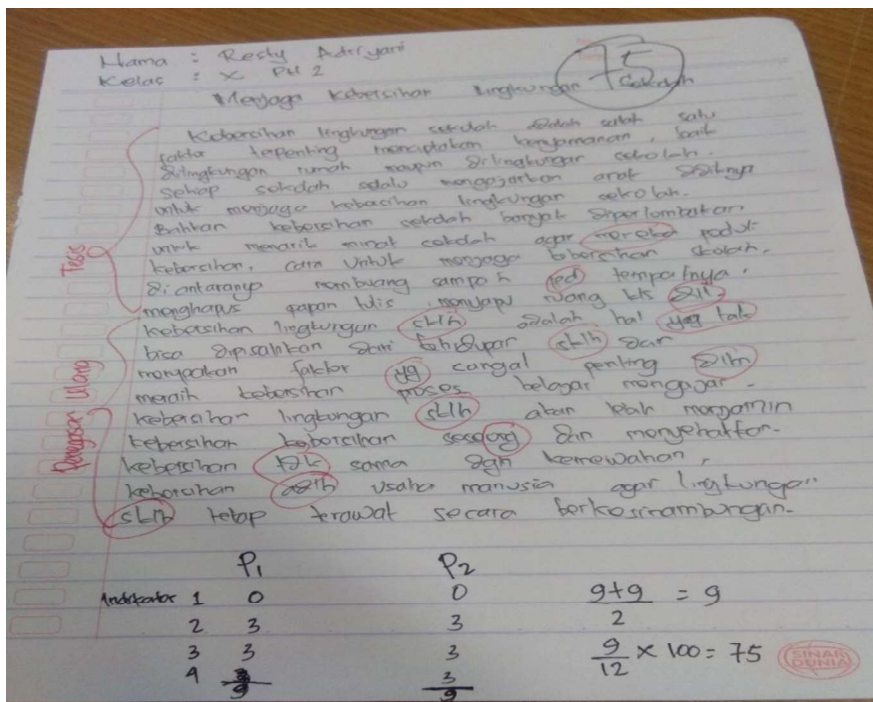 Nama : Resty Adriyani
Kelas : X PH 2
75
Menjaga Kebersihan lingkungan Sekolah
Kebersihan lingkungan sekolah adalah salah satu
faktor terpenting menciptakan kenyamanan, baik
dilingkungan rumah maupun dilingkungan sekolah.
Setiap sekolah selalu mengajarkan anak didiknya
untuk menjaga kebersihan lingkungan sekolah.
Bahkan kebersihan sekolah banyak diperlombakan.
untuk menarik minat sekolah agar mereka peduli
kebersihan, cara untuk menjaga kebersihan skolah.
diantaranya membuang sampah pd tempatnya,
menghapus papan tulis, menyapu ruang kls dll.
Kebersihan lingkungan sklh adalah hal yag tak
bisa dipisahkan dari kehidupan sklh dan
merupakan faktor yg sangat penting dlm
meraih kebersihan proses belajar mengajar.
kebersihan lingkungan sklh akan lebih menjamin
kebersihan kebersihan seseorg dan menyehatkan.
kebersihan tdk sama dgn kemewahan,
kebersihan adlh usaha manusia agar lingkungan
sklh tetap terawat secara berkesinambungan.
Tesis
Penegasan Ulang
P1 P2
Indikator 1 0 0
2 3 3
3 3 3
4 3
9 9
9+9 = 9
2
9 × 100 = 75
12
SINAR
DUNIA